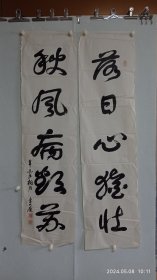 落日心猶壯
秋風病欲蘇
2024.05.08 10:11